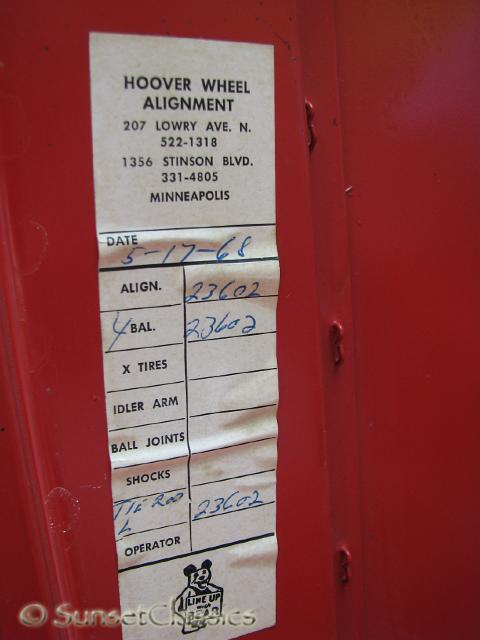 HOOVER WHEEL
ALIGNMENT
207 LOWRY AVE. N.
522-1318
1356 STINSON BLVD.
331-4805
MINNEAPOLIS
DATE
5-17-68
ALIGN. 23602
4 BAL. 23602
X TIRES
IDLER ARM
BALL JOINTS
SHOCKS
TIE ROD 23602
L
OPERATOR
LINE UP
WITH
BEAR
© SunsetClassics